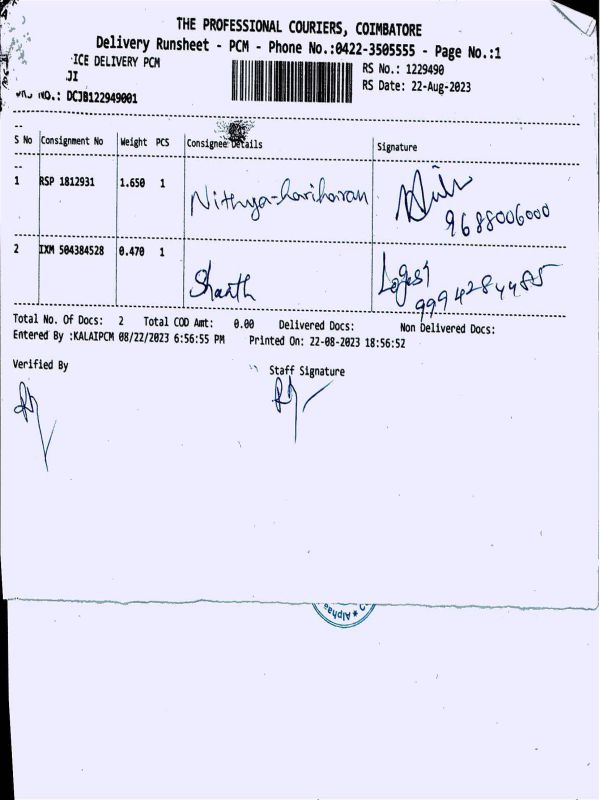 THE PROFESSIONAL COURIERS, COIMBATORE
Delivery Runsheet - PCM - Phone No.:0422-3505555 - Page No.:1
ICE DELIVERY PCM
RS No.: 1229490
JI
RS Date: 22-Aug-2023
NO.: DCJB122949001
S No Consignment No Weight PCS Consignee Details Signature
1 RSP 1812931 1.650 1 Nithya-hariharan
9688006000
2 IXM 504384528 0.470 1 Sharth Logesh
9994284485
Total No. Of Docs: 2 Total COD Amt: 0.00 Delivered Docs: Non Delivered Docs:
Entered By :KALAIPCM 08/22/2023 6:56:55 PM Printed On: 22-08-2023 18:56:52
Verified By Staff Signature